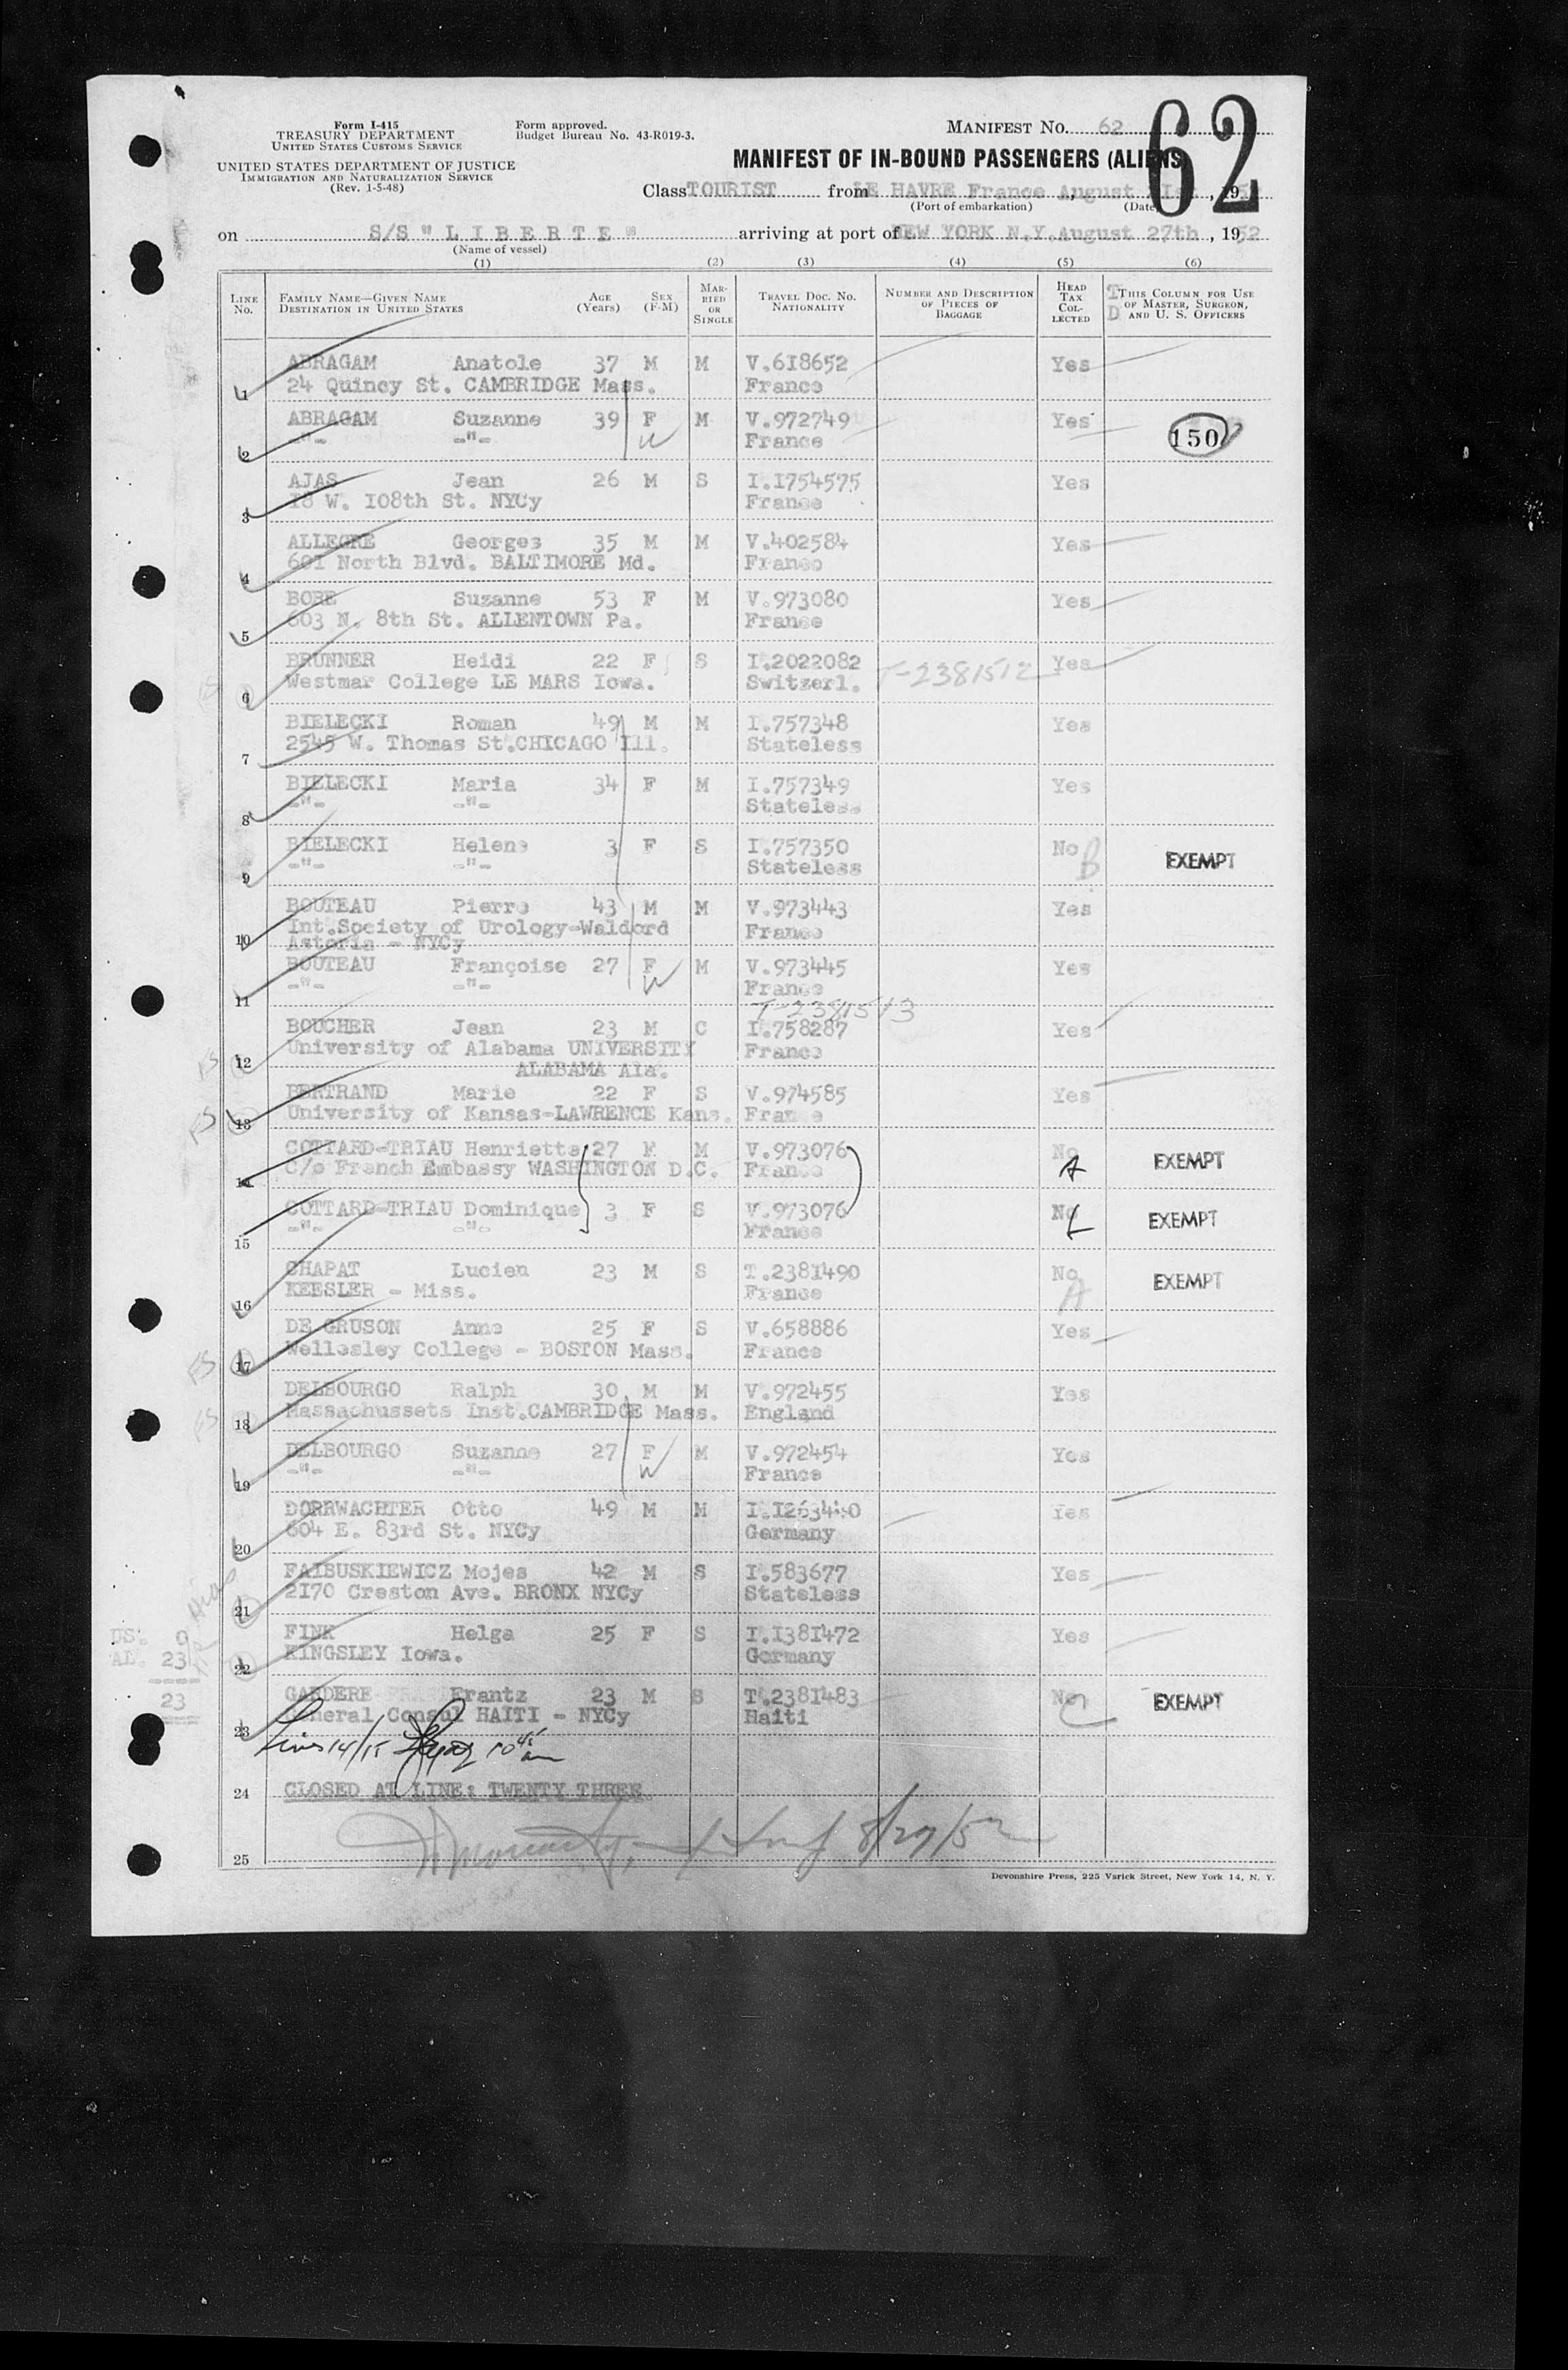 Form I-415
TREASURY DEPARTMENT
UNITED STATES CUSTOMS SERVICE
UNITED STATES DEPARTMENT OF JUSTICE
IMMIGRATION AND NATURALIZATION SERVICE
(Rev. 1-5-48)
Form approved.
Budget Bureau No. 43-R019-3.
MANIFEST NO. 62
62
MANIFEST OF IN-BOUND PASSENGERS (ALIENS)
Class TOURIST from LE HAVRE France August , 19
(Port of embarkation) (Date)
on S/S " L I B E R T E " arriving at port of NEW YORK N.Y. August 27th , 1952
(Name of vessel)
(1) (2) (3) (4) (5) (6)
LINE No. FAMILY NAME—GIVEN NAME DESTINATION IN UNITED STATES AGE (Years) SEX (F-M) MARRIED OR SINGLE TRAVEL DOC. NO. NATIONALITY NUMBER AND DESCRIPTION OF PIECES OF BAGGAGE HEAD TAX COLLECTED THIS COLUMN FOR USE OF MASTER, SURGEON, AND U. S. OFFICERS
T
D
ABRAGAM Anatole 37 M M V.618652 Yes
1 24 Quincy St. CAMBRIDGE Mass. France
ABRAGAM Suzanne 39 F M V.972749 Yes
2 -"- -"- W France 150
AJAS Jean 26 M S I.1754575 Yes
3 18 W. 108th St. NYCy France
ALLEGRE Georges 35 M M V.402584 Yes
4 601 North Blvd. BALTIMORE Md. France
BOBE Suzanne 53 F M V.973080 Yes
5 603 N. 8th St. ALLENTOWN Pa. France
BRUNNER Heidi 22 F S I.2022082 T-2381512 Yes
6 Westmar College LE MARS Iowa. Switzerl.
BIELECKI Roman 49 M M I.757348 Yes
7 2545 W. Thomas St.CHICAGO Ill. Stateless
BIELECKI Maria 34 F M I.757349 Yes
8 -"- -"- Stateless
BIELECKI Helene 3 F S I.757350 No B EXEMPT
9 -"- -"- Stateless
BOUTEAU Pierre 43 M M V.973443 Yes
10 Int.Society of Urology-Waldord France
Astoria - NYCy
BOUTEAU Françoise 27 F M V.973445 Yes
11 -"- -"- W France
T-2381513
BOUCHER Jean 23 M C I.758287 Yes
FS 12 University of Alabama UNIVERSITY France
ALABAMA Ala.
BERTRAND Marie 22 F S V.974585 Yes
FS 13 University of Kansas-LAWRENCE Kans. France
COTTARD-TRIAU Henriette 27 F M V.973076 No A EXEMPT
14 C/o French Embassy WASHINGTON D.C. France
COTTARD-TRIAU Dominique 3 F S V.973076 No EXEMPT
15 -"- -"- France
CHAPAT Lucien 23 M S T.2381490 No A EXEMPT
16 KEESLER - Miss. France
DE GRUSON Anne 25 F S V.658886 Yes
FS 17 Wellesley College - BOSTON Mass. France
DELBOURGO Ralph 30 M M V.972455 Yes
FS 18 Massachussets Inst.CAMBRIDGE Mass. England
DELBOURGO Suzanne 27 F M V.972454 Yes
19 -"- -"- W France
DORRWACHTER Otto 49 M M I.1263440 Yes
20 604 E. 83rd St. NYCy Germany
FAIBUSKIEWICZ Mojes 42 M S I.583677 Yes
21 2170 Creston Ave. BRONX NYCy Stateless
FINK Helga 25 F S I.1381472 Yes
22 KINGSLEY Iowa. Germany
US. 0
AL. 23
23
GARDERE Frantz 23 M S T.2381483 No EXEMPT
23 General Consul HAITI - NYCy Haiti
Lines 14/15 10 45 am
24 CLOSED AT LINE: TWENTY THREE
25 8/27/52
Devonshire Press, 225 Varick Street, New York 14, N. Y.